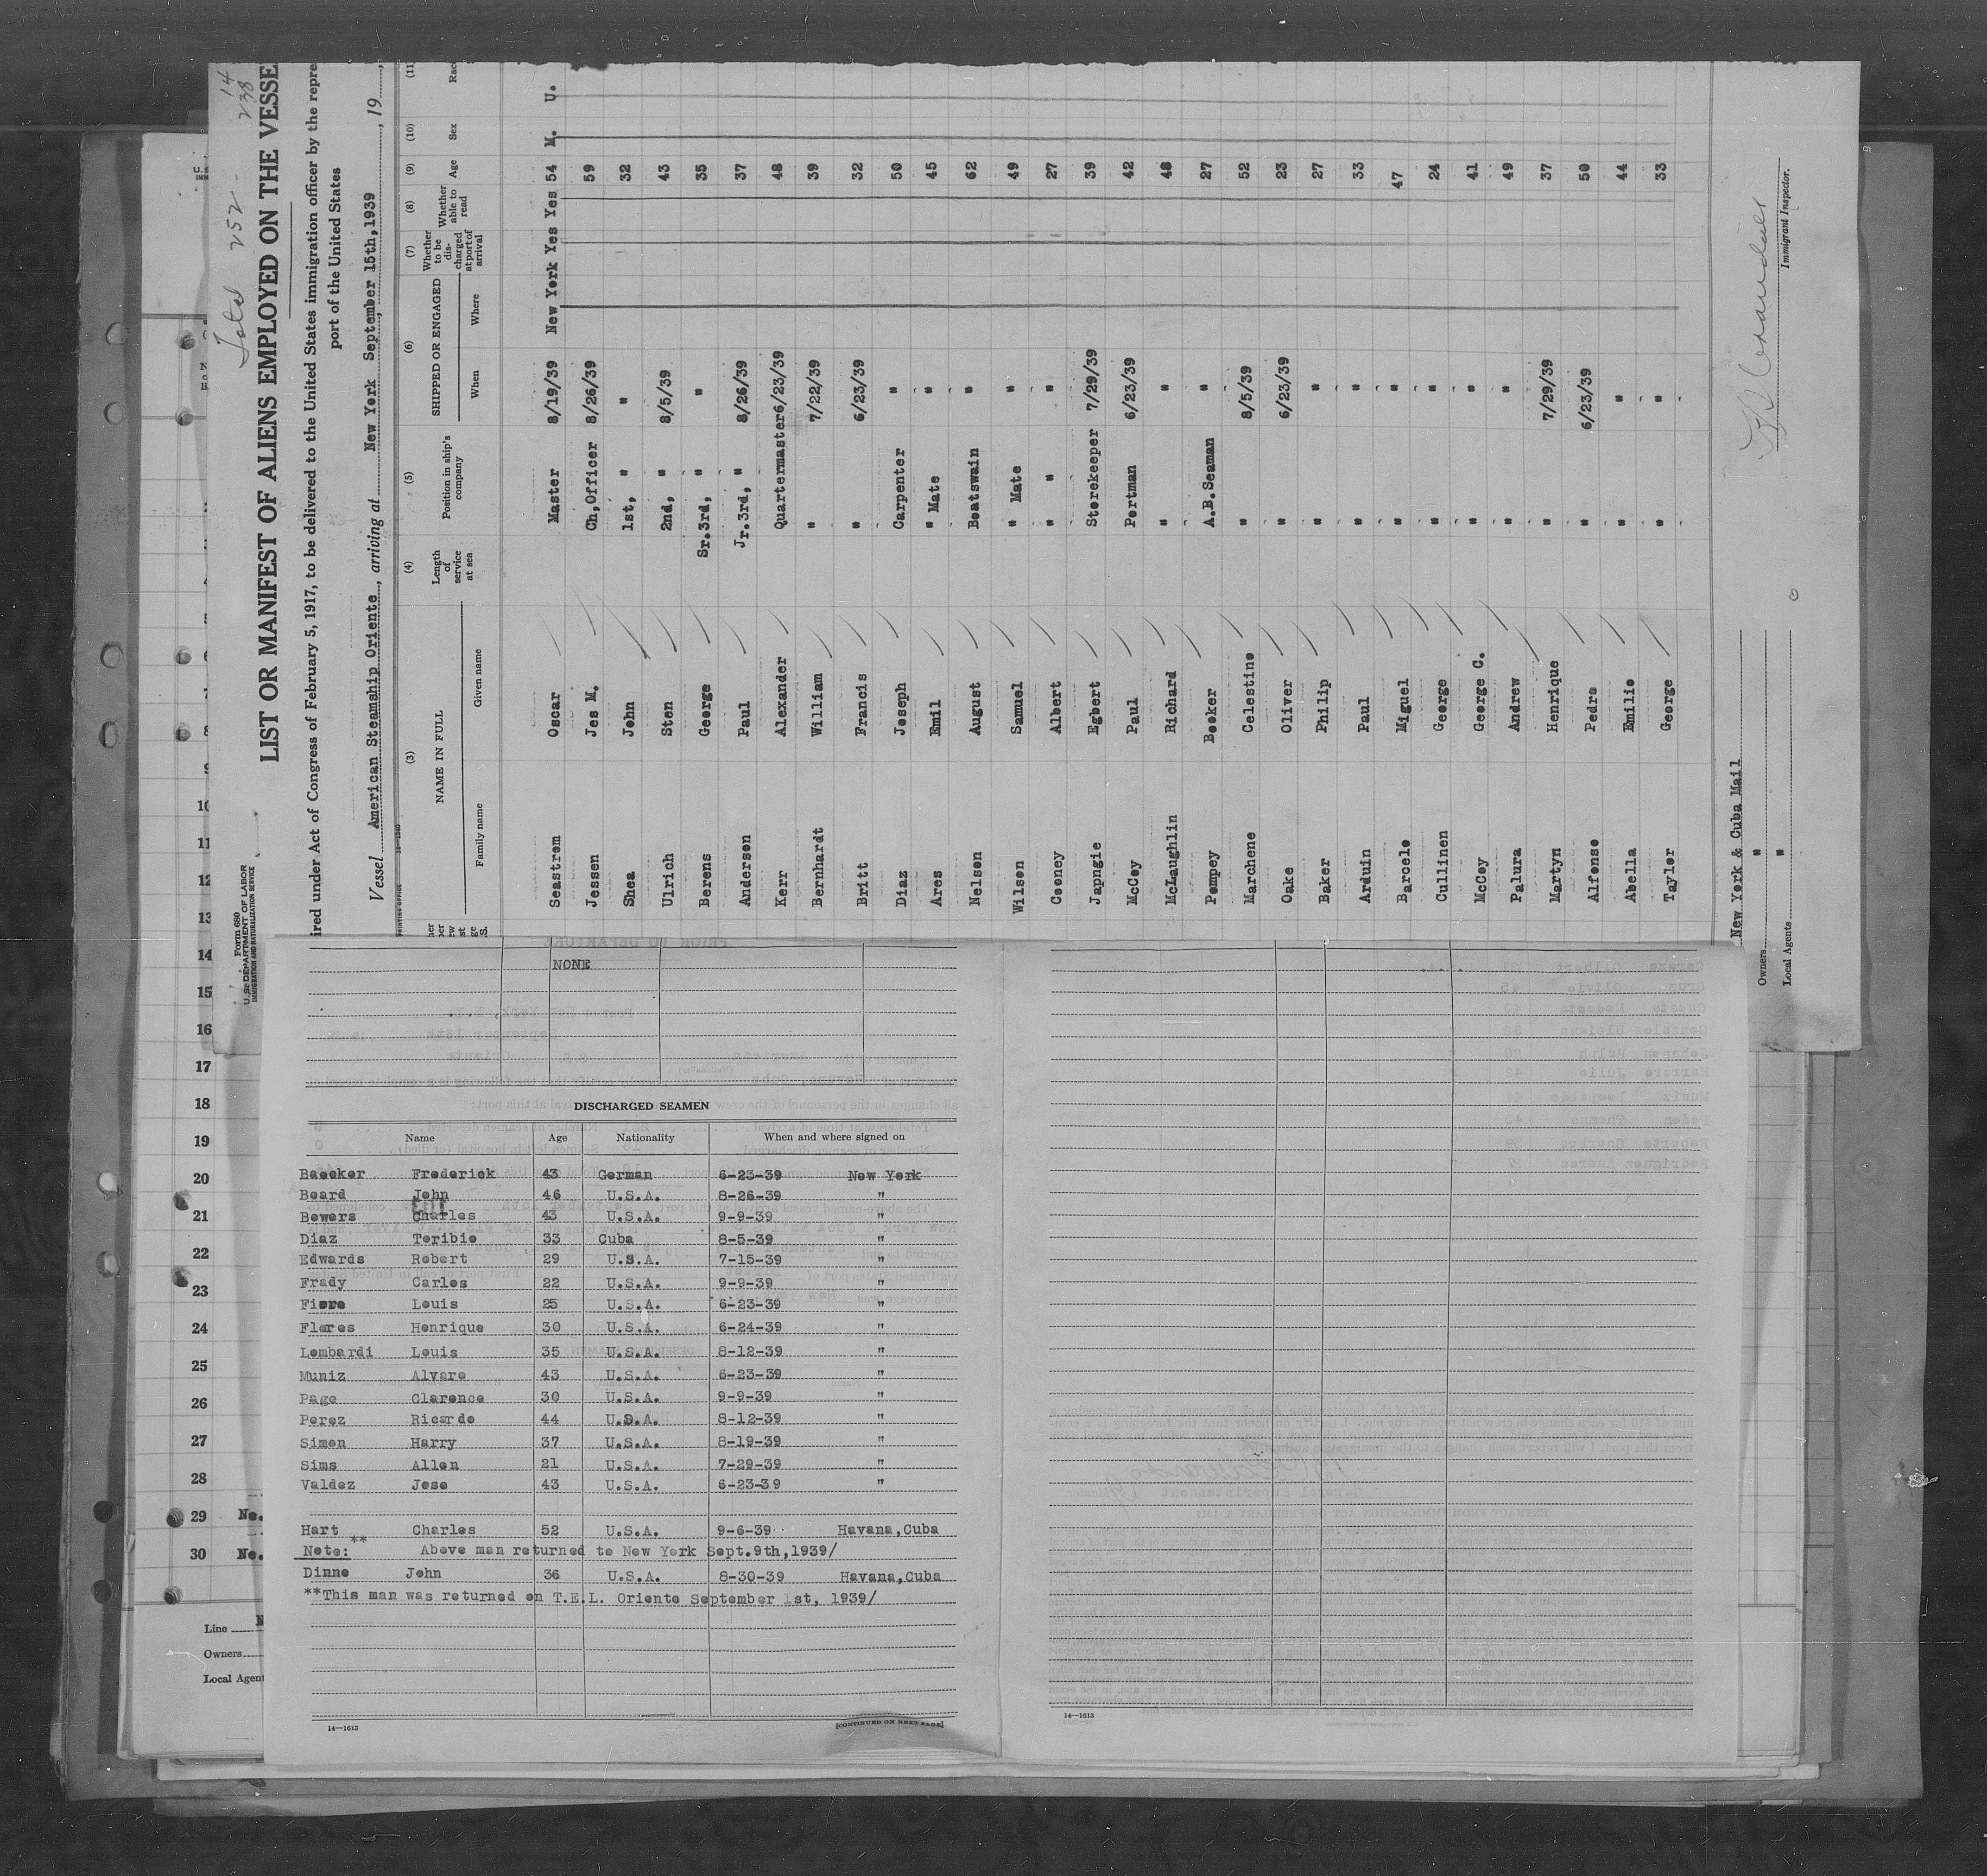 Total 252 - 14
238
Form 680
U.S. DEPARTMENT OF LABOR
IMMIGRATION AND NATURALIZATION SERVICE
LIST OR MANIFEST OF ALIENS EMPLOYED ON THE VESSE
ired under Act of Congress of February 5, 1917, to be delivered to the United States immigration officer by the repre
port of the United States
Vessel American Steamship Oriente, arriving at New York September 15th, 1939, 19
(3) (4) (5) (6) (7) (8) (9) (10) (11
NAME IN FULL Length of service at sea Position in ship's company SHIPPED OR ENGAGED Whether to be discharged at port of arrival Whether able to read Age Sex Rac
Family name Given name When Where
Seastrom Oscar Master 8/19/39 New York Yes Yes 54 M. U.
Jessen Jes M. Ch,Officer 8/26/39 59
Shea John 1st, " " 32
Ulrich Sten 2nd, " 8/5/39 43
Berens George Sr.3rd, " " 35
Andersen Paul Jr.3rd, " 8/26/39 37
Kerr Alexander Quartermaster 6/23/39 48
Bernhardt William " 7/22/39 39
Britt Francis " 6/23/39 32
Diaz Joseph Carpenter " 50
Ares Emil " Mate " 45
Nelson August Boatswain " 62
Wilson Samuel " Mate " 49
Cooney Albert " " " 27
Japngie Egbert Storekeeper 7/29/39 39
McCoy Paul Portman 6/23/39 42
McLaughlin Richard " " 48
Pompey Booker A.B.Seaman " 27
Marchene Celestino " 8/5/39 52
Oake Oliver " 6/23/39 23
Baker Philip " " 27
Arduin Paul " " 33
Barcelo Miguel " " 47
Cullinen George " " 24
McCoy George C. " " 41
Palura Andrew " " 49
Martyn Henrique " 7/29/39 37
Alfonso Pedro " 6/23/39 50
Abella Emilio " " 44
Taylor George " " 33
New York & Cuba Mail
Owners "
Local Agents "
Immigrant Inspector.
10
11
12
13
14
15
16
17
18
19
20
21
22
23
24
25
26
27
28
29 No.
30 No.
Line N
Owners
Local Agent
NONE
DISCHARGED SEAMEN
Name Age Nationality When and where signed on
Baecker Frederick 43 German 6-23-39 New York
Beard John 46 U.S.A. 8-26-39 "
Bowers Charles 43 U.S.A. 9-9-39 "
Diaz Toribio 33 Cuba 8-5-39 "
Edwards Robert 29 U.S.A. 7-15-39 "
Frady Carlos 22 U.S.A. 9-9-39 "
Fiore Louis 25 U.S.A. 6-23-39 "
Flores Henrique 30 U.S.A. 6-24-39 "
Lombardi Louis 35 U.S.A. 8-12-39 "
Muniz Alvaro 43 U.S.A. 6-23-39 "
Page Clarence 30 U.S.A. 9-9-39 "
Perez Ricardo 44 U.S.A. 8-12-39 "
Simon Harry 37 U.S.A. 8-19-39 "
Sims Allen 21 U.S.A. 7-29-39 "
Valdez Jose 43 U.S.A. 6-23-39 "
Hart Charles 52 U.S.A. 9-6-39 Havana,Cuba
Note: ** Above man returned to New York Sept.9th,1939/
Dinne John 36 U.S.A. 8-30-39 Havana,Cuba
**This man was returned on T.E.L. Oriente September 1st, 1939/
14—1613
[CONTINUED ON NEXT PAGE]
14—1613